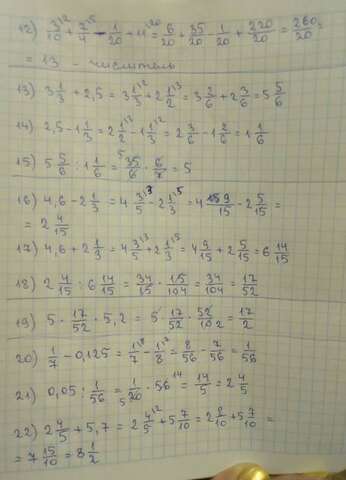 12) 3/10 + 7/4 - 1/20 + 11 = 6/20 + 35/20 - 1/20 + 220/20 = 260/20 =
= 13 - числитель
13) 3 1/3 + 2,5 = 3 1/3 + 2 1/2 = 3 2/6 + 2 3/6 = 5 5/6
14) 2,5 - 1 1/3 = 2 1/2 - 1 1/3 = 2 3/6 - 1 2/6 = 1 1/6
15) 5 5/6 : 1 1/6 = 35/6 · 6/7 = 5
16) 4,6 - 2 1/3 = 4 3/5 - 2 1/3 = 4 9/15 - 2 5/15 =
= 2 4/15
17) 4,6 + 2 1/3 = 4 3/5 + 2 1/3 = 4 9/15 + 2 5/15 = 6 14/15
18) 2 4/15 : 6 14/15 = 34/15 · 15/104 = 34/104 = 17/52
19) 5 · 17/52 · 5,2 = 5 · 17/52 · 52/10 = 17/2
20) 1/7 - 0,125 = 1/7 - 1/8 = 8/56 - 7/56 = 1/56
21) 0,05 : 1/56 = 1/20 · 56 = 14/5 = 2 4/5
22) 2 4/5 + 5,7 = 2 4/5 + 5 7/10 = 2 8/10 + 5 7/10 =
= 7 15/10 = 8 1/2